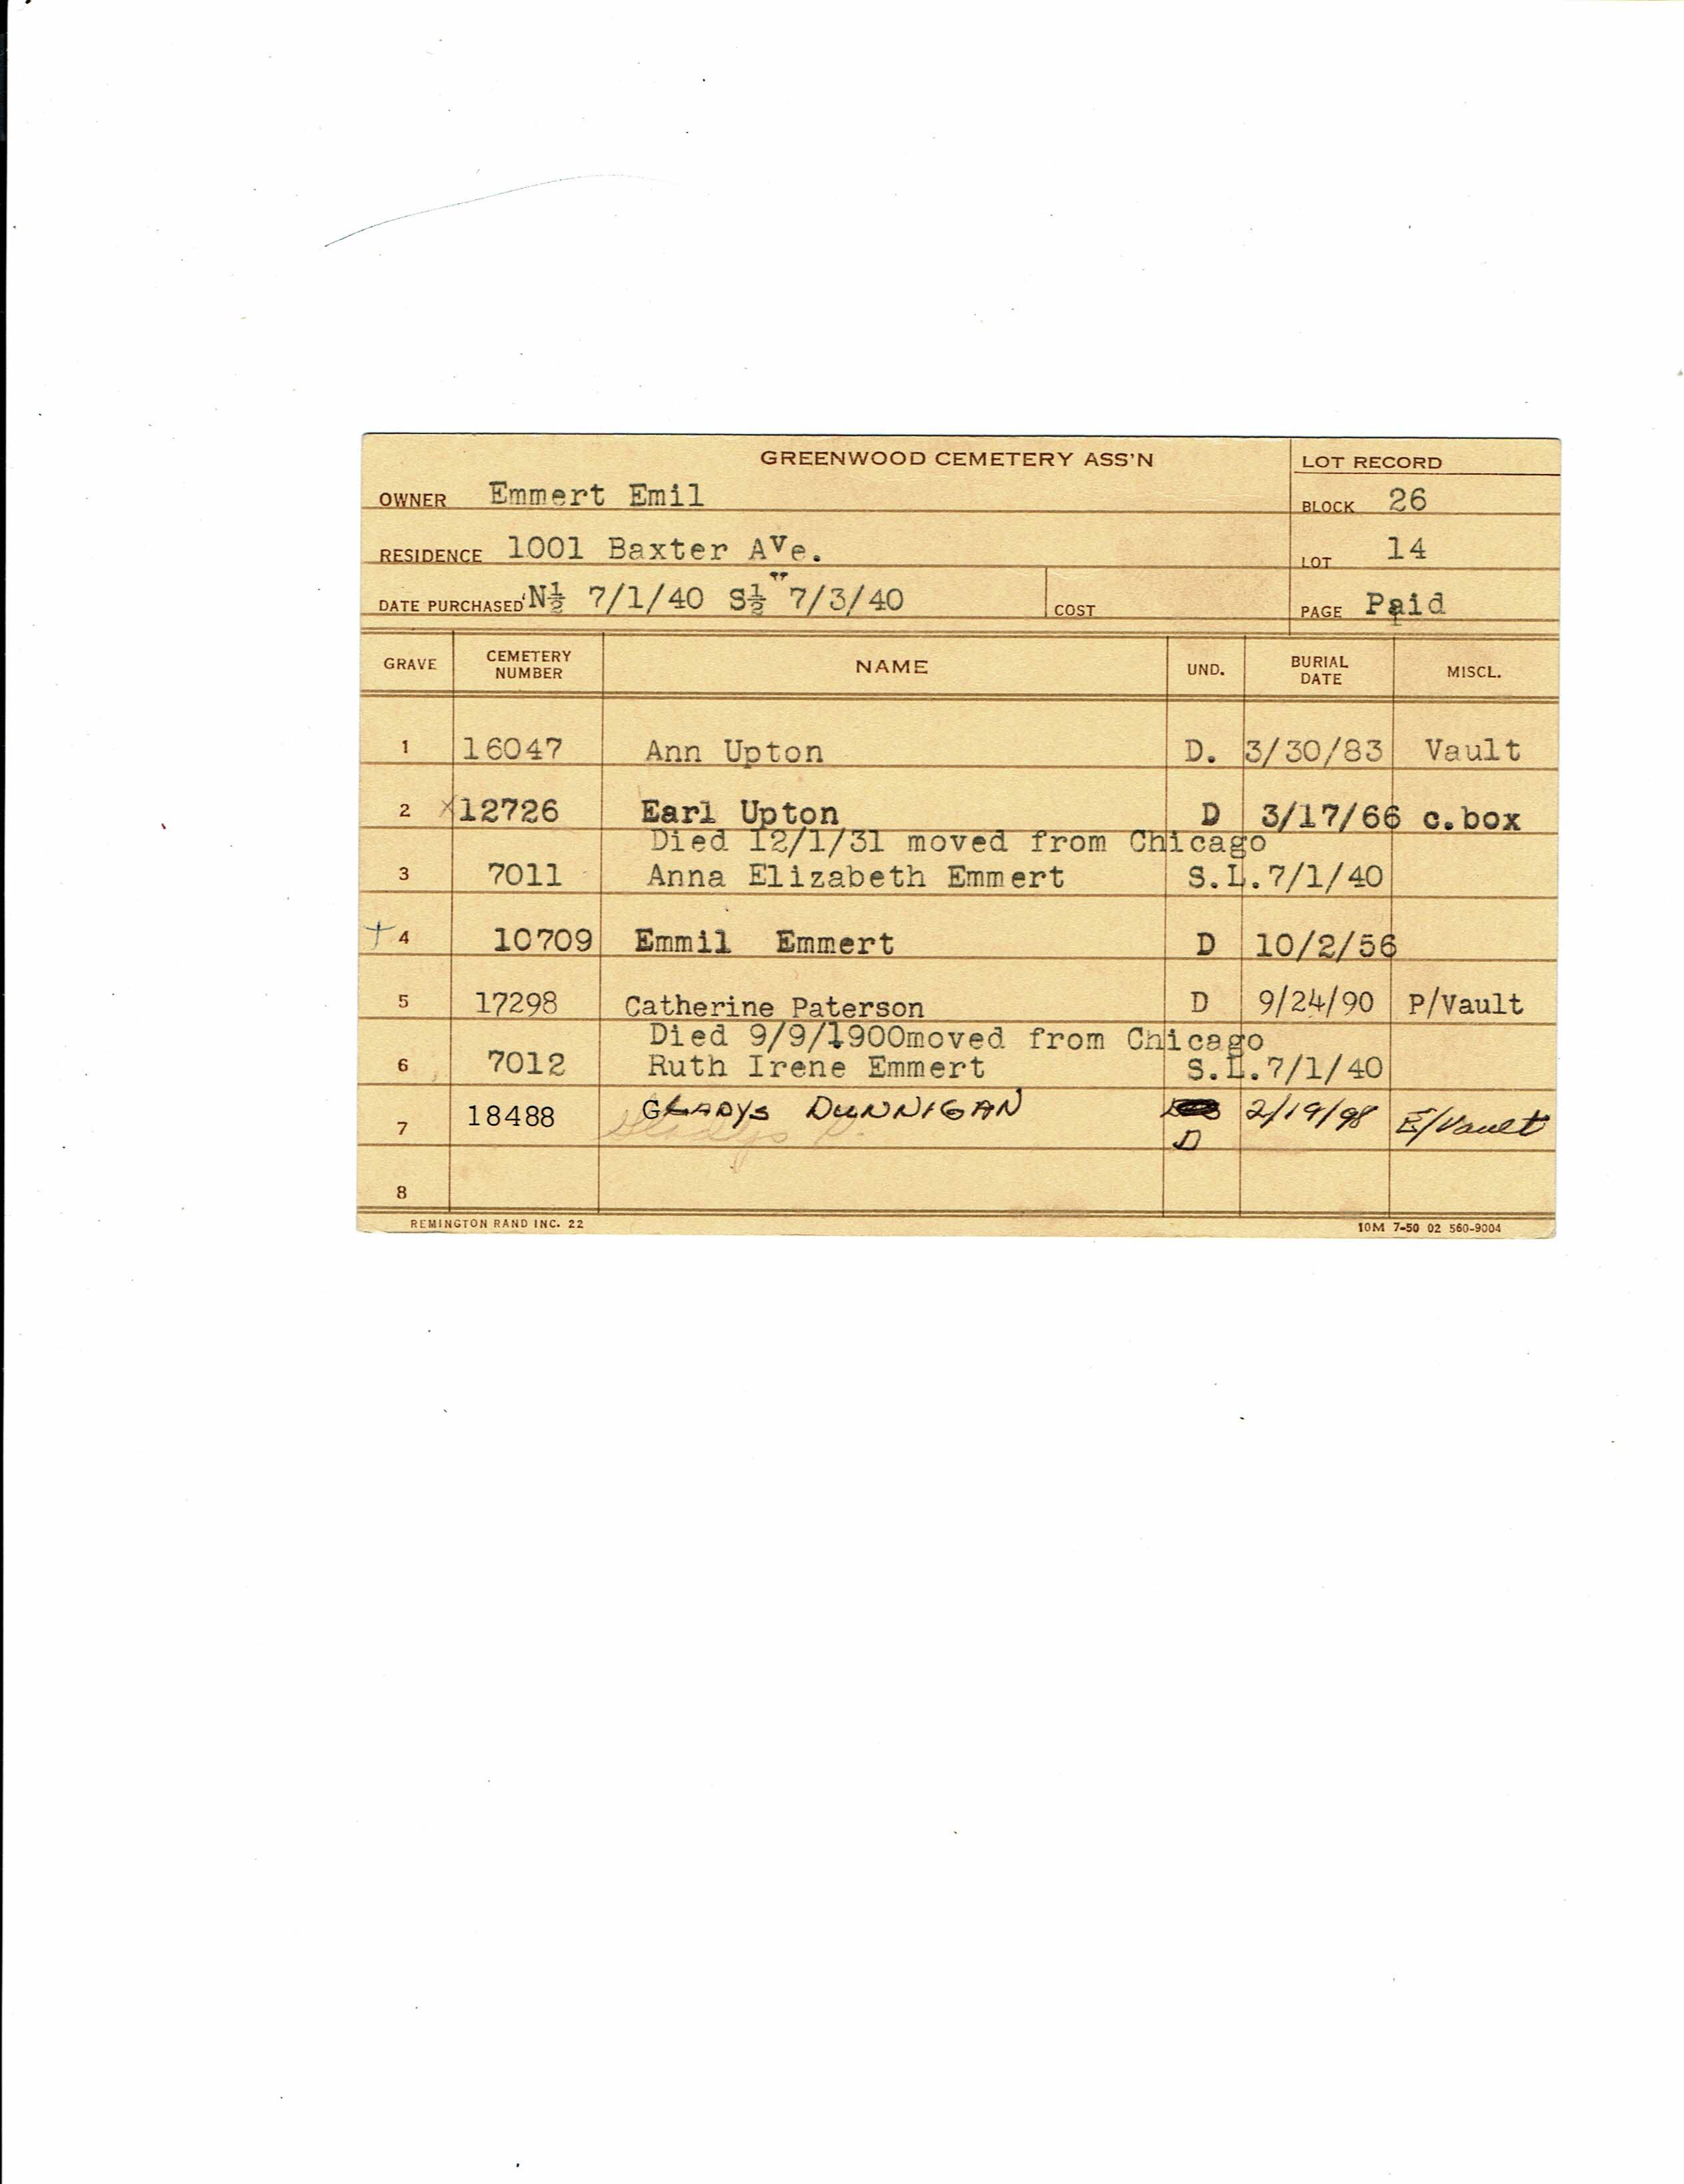 GREENWOOD CEMETERY ASS'N
LOT RECORD
OWNER Emmert Emil
BLOCK 26
RESIDENCE 1001 Baxter AVe.
LOT 14
DATE PURCHASED N½ 7/1/40 S½ " 7/3/40
COST
PAGE Paid
GRAVE CEMETERY NUMBER NAME UND. BURIAL DATE MISCL.
1 16047 Ann Upton D. 3/30/83 Vault
2 x12726 Earl Upton D 3/17/66 c.box
Died 12/1/31 moved from Chicago
3 7011 Anna Elizabeth Emmert S.L. 7/1/40
† 4 10709 Emmil Emmert D 10/2/56
5 17298 Catherine Paterson D 9/24/90 P/Vault
Died 9/9/1900moved from Chicago
6 7012 Ruth Irene Emmert S.L. 7/1/40
7 18488 GLADYS DUNNIGAN D 2/19/98 E/Vault
Gladys
8
REMINGTON RAND INC. 22
10M 7-50 02 560-9004